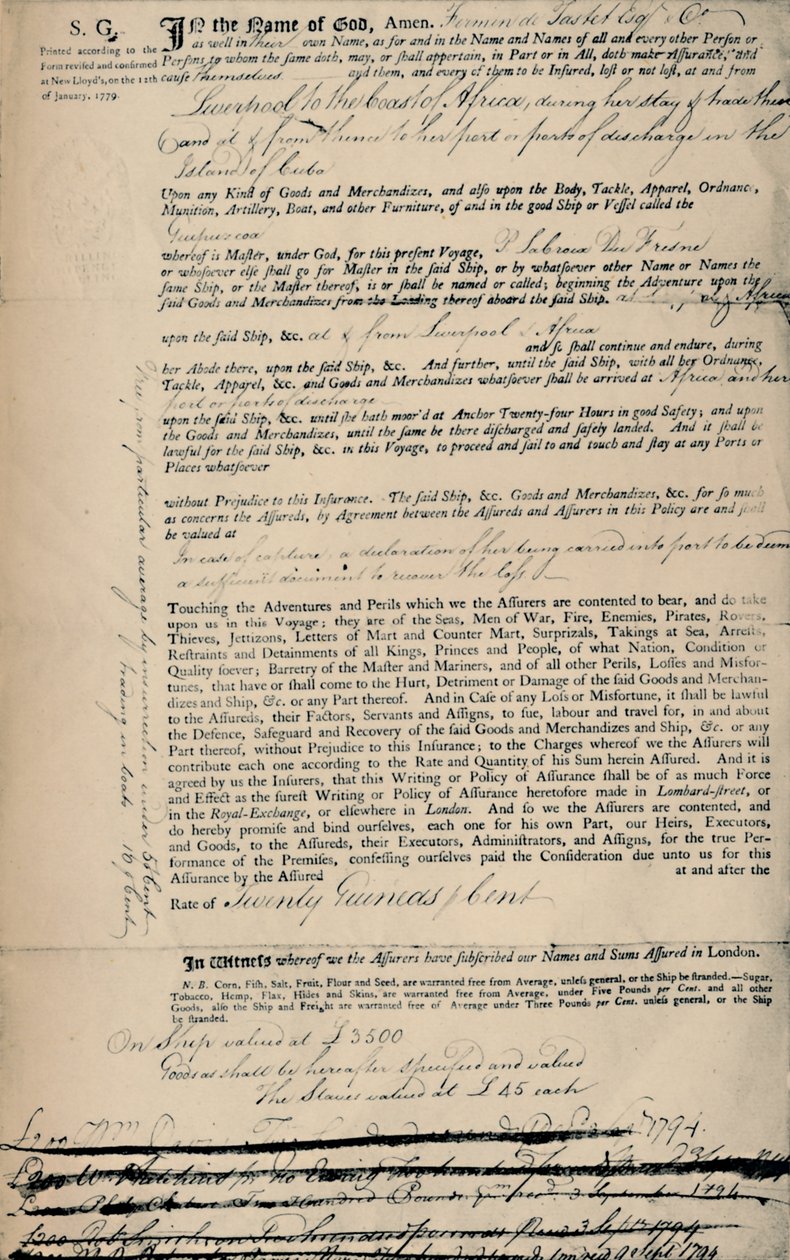 S. G.
Printed according to the
Form revised and confirmed
at New Lloyd's, on the 12th
of January, 1779.
IN the Name of God, Amen. Fermin de Tastet Esqr & Co
as well in their own Name, as for and in the Name and Names of all and every other Person or
Persons to whom the same doth, may, or shall appertain, in Part or in All, doth make Assurance, and
cause themselves and them, and every of them to be Insured, lost or not lost, at and from
Liverpool to the Coast of Africa, during her stay & trade there
and at & from thence to her port or ports of discharge in the
Island of Cuba
Upon any Kind of Goods and Merchandizes, and also upon the Body, Tackle, Apparel, Ordnance,
Munition, Artillery, Boat, and other Furniture, of and in the good Ship or Vessel called the
Guipuzcoa
whereof is Master, under God, for this present Voyage, P LaCroix Du Fresne
or whosoever else shall go for Master in the said Ship, or by whatsoever other Name or Names the
same Ship, or the Master thereof, is or shall be named or called; beginning the Adventure upon the
said Goods and Merchandizes from the Loading thereof aboard the said Ship. at Africa
upon the said Ship, &c. at & from Liverpool & Africa
and so shall continue and endure, during
her Abode there, upon the said Ship, &c. And further, until the said Ship, with all her Ordnance,
Tackle, Apparel, &c. and Goods and Merchandizes whatsoever shall be arrived at Africa and her
port or ports of discharge
upon the said Ship, &c. until she hath moor'd at Anchor Twenty-four Hours in good Safety; and upon
the Goods and Merchandizes, until the same be there discharged and safely landed. And it shall be
lawful for the said Ship, &c. in this Voyage, to proceed and sail to and touch and stay at any Ports or
Places whatsoever
without Prejudice to this Insurance. The said Ship, &c. Goods and Merchandizes, &c. for so much
as concerns the Assureds, by Agreement between the Assureds and Assurers in this Policy are and shall
be valued at
In case of capture, a declaration of her being carried into port to be deem
a sufficient document to recover the loss
Touching the Adventures and Perils which we the Assurers are contented to bear, and do take
upon us in this Voyage; they are of the Seas, Men of War, Fire, Enemies, Pirates, Rovers,
Thieves, Jettizons, Letters of Mart and Counter Mart, Surprizals, Takings at Sea, Arrests,
Restraints and Detainments of all Kings, Princes and People, of what Nation, Condition or
Quality soever; Barretry of the Master and Mariners, and of all other Perils, Losses and Misfor-
tunes, that have or shall come to the Hurt, Detriment or Damage of the said Goods and Merchan-
dizes and Ship, &c. or any Part thereof. And in Case of any Loss or Misfortune, it shall be lawful
to the Assureds, their Factors, Servants and Assigns, to sue, labour and travel for, in and about
the Defence, Safeguard and Recovery of the said Goods and Merchandizes and Ship, &c. or any
Part thereof, without Prejudice to this Insurance; to the Charges whereof we the Assurers will
contribute each one according to the Rate and Quantity of his Sum herein Assured. And it is
agreed by us the Insurers, that this Writing or Policy of Assurance shall be of as much Force
and Effect as the surest Writing or Policy of Assurance heretofore made in Lombard-street, or
in the Royal-Exchange, or elsewhere in London. And so we the Assurers are contented, and
do hereby promise and bind ourselves, each one for his own Part, our Heirs, Executors,
and Goods, to the Assureds, their Executors, Administrators, and Assigns, for the true Per-
formance of the Premises, confessing ourselves paid the Consideration due unto us for this
Assurance by the Assured at and after the
Rate of Twenty Guineas p Cent
particular average by insurrection under 5 p Cent
trading in boats 10 p Cent
In Witness whereof we the Assurers have subscribed our Names and Sums Assured in London.
N. B. Corn, Fish, Salt, Fruit, Flour and Seed, are warranted free from Average, unless general, or the Ship be stranded.—Sugar,
Tobacco, Hemp, Flax, Hides and Skins, are warranted free from Average, under Five Pounds per Cent. and all other
Goods, also the Ship and Freight are warranted free of Average under Three Pounds per Cent. unless general, or the Ship
be stranded.
On Ship valued at £3500
Goods as shall be hereafter specified and valued
The Slaves valued at £45 each
£200 Wm 1794.
£200
£200 Two Hundred Pounds 3 September 1794
£200 Robt Two hundred pounds 3 Sept 1794
Sept 1794